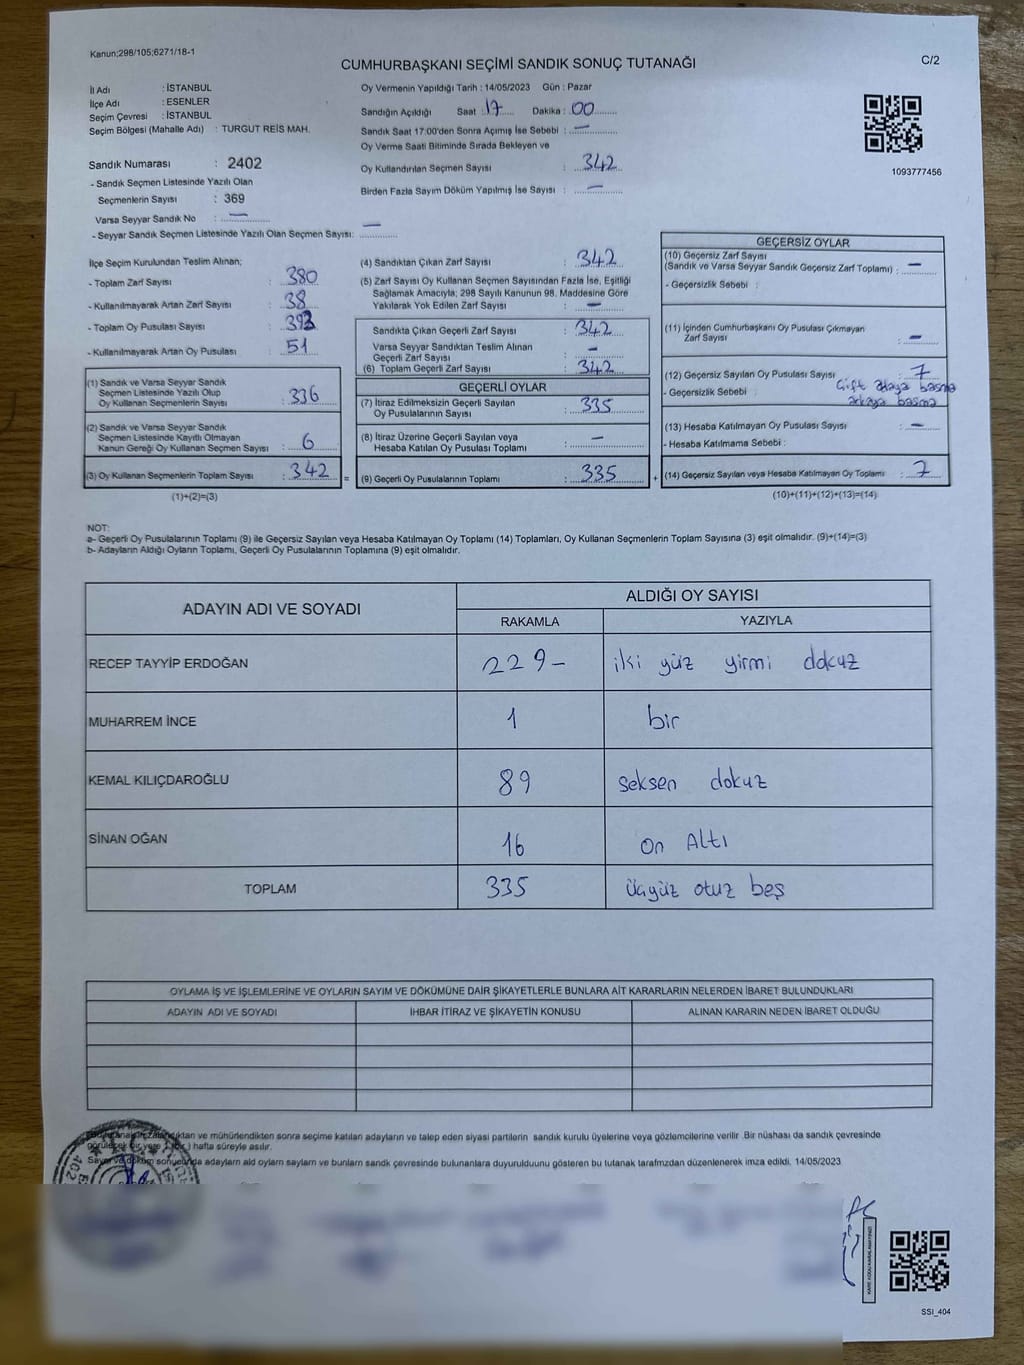 Kanun;298/105;6271/18-1
CUMHURBAŞKANI SEÇİMİ SANDIK SONUÇ TUTANAĞI
C/2
İl Adı : İSTANBUL
İlçe Adı : ESENLER
Seçim Çevresi : İSTANBUL
Seçim Bölgesi (Mahalle Adı) : TURGUT REİS MAH.
Sandık Numarası : 2402
- Sandık Seçmen Listesinde Yazılı Olan
Seçmenlerin Sayısı : 369
Varsa Seyyar Sandık No : —
- Seyyar Sandık Seçmen Listesinde Yazılı Olan Seçmen Sayısı: —
Oy Vermenin Yapıldığı Tarih : 14/05/2023 Gün : Pazar
Sandığın Açıldığı Saat : 17 Dakika : 00
Sandık Saat 17.00'den Sonra Açımış İse Sebebi : —
Oy Verme Saati Bitiminde Sırada Bekleyen ve
Oy Kullandırılan Seçmen Sayısı : 342
Birden Fazla Sayım Döküm Yapılmış İse Sayısı : —
1093777456
İlçe Seçim Kurulundan Teslim Alınan;
- Toplam Zarf Sayısı : 380
- Kullanılmayarak Artan Zarf Sayısı : 38
- Toplam Oy Pusulası Sayısı : 393
- Kullanılmayarak Artan Oy Pusulası : 51
(1) Sandık ve Varsa Seyyar Sandık
Seçmen Listesinde Yazılı Olup
Oy Kullanan Seçmenlerin Sayısı : 336
(2) Sandık ve Varsa Seyyar Sandık
Seçmen Listesinde Kayıtlı Olmayan
Kanun Gereği Oy Kullanan Seçmen Sayısı : 6
(3) Oy Kullanan Seçmenlerin Toplam Sayısı : 342 =
(1)+(2)=(3)
(4) Sandıktan Çıkan Zarf Sayısı : 342
(5) Zarf Sayısı Oy Kullanan Seçmen Sayısından Fazla İse, Eşitliği
Sağlamak Amacıyla; 298 Sayılı Kanunun 98. Maddesine Göre
Yakılarak Yok Edilen Zarf Sayısı : —
Sandıkta Çıkan Geçerli Zarf Sayısı : 342
Varsa Seyyar Sandıktan Teslim Alınan
Geçerli Zarf Sayısı : —
(6) Toplam Geçerli Zarf Sayısı : 342
GEÇERLİ OYLAR
(7) İtiraz Edilmeksizin Geçerli Sayılan
Oy Pusulalarının Sayısı : 335
(8) İtiraz Üzerine Geçerli Sayılan veya
Hesaba Katılan Oy Pusulası Toplamı : —
(9) Geçerli Oy Pusulalarının Toplamı : 335 +
GEÇERSİZ OYLAR
(10) Geçersiz Zarf Sayısı
(Sandık ve Varsa Seyyar Sandık Geçersiz Zarf Toplamı) : —
- Geçersizlik Sebebi :
(11) İçinden Cumhurbaşkanı Oy Pusulası Çıkmayan
Zarf Sayısı : —
(12) Geçersiz Sayılan Oy Pusulası Sayısı : 7
- Geçersizlik Sebebi : Çift adaya basma
arkaya basma
(13) Hesaba Katılmayan Oy Pusulası Sayısı : —
- Hesaba Katılmama Sebebi :
(14) Geçersiz Sayılan veya Hesaba Katılmayan Oy Toplamı : 7
(10)+(11)+(12)+(13)=(14)
NOT:
a- Geçerli Oy Pusulalarının Toplamı (9) ile Geçersiz Sayılan veya Hesaba Katılmayan Oy Toplamı (14) Toplamları, Oy Kullanan Seçmenlerin Toplam Sayısına (3) eşit olmalıdır. (9)+(14)=(3)
b- Adayların Aldığı Oyların Toplamı, Geçerli Oy Pusulalarının Toplamına (9) eşit olmalıdır.
ADAYIN ADI VE SOYADI
ALDIĞI OY SAYISI
RAKAMLA YAZIYLA
RECEP TAYYİP ERDOĞAN 229- iki yüz yirmi dokuz
MUHARREM İNCE 1 bir
KEMAL KILIÇDAROĞLU 89 seksen dokuz
SİNAN OĞAN 16 on Altı
TOPLAM 335 üçyüz otuz beş
OYLAMA İŞ VE İŞLEMLERİNE VE OYLARIN SAYIM VE DÖKÜMÜNE DAİR ŞİKAYETLERLE BUNLARA AİT KARARLARIN NELERDEN İBARET BULUNDUKLARI
ADAYIN ADI VE SOYADI İHBAR İTİRAZ VE ŞİKAYETİN KONUSU ALINAN KARARIN NEDEN İBARET OLDUĞU
ve mühürlendikten sonra seçime katılan adayların ve talep eden siyasi partilerin sandık kurulu üyelerine veya gözlemcilerine verilir. Bir nüshası da sandık çevresinde
görülecek bir yere hafta süreyle asılır.
Sayım ve döküm sonucunda adayların ald oyların sayların ve bunların sandk çevresinde bulunanlara duyurulduunu gösteren bu tutanak tarafmzdan düzenlenerek imza edildi. 14/05/2023
SSI_404